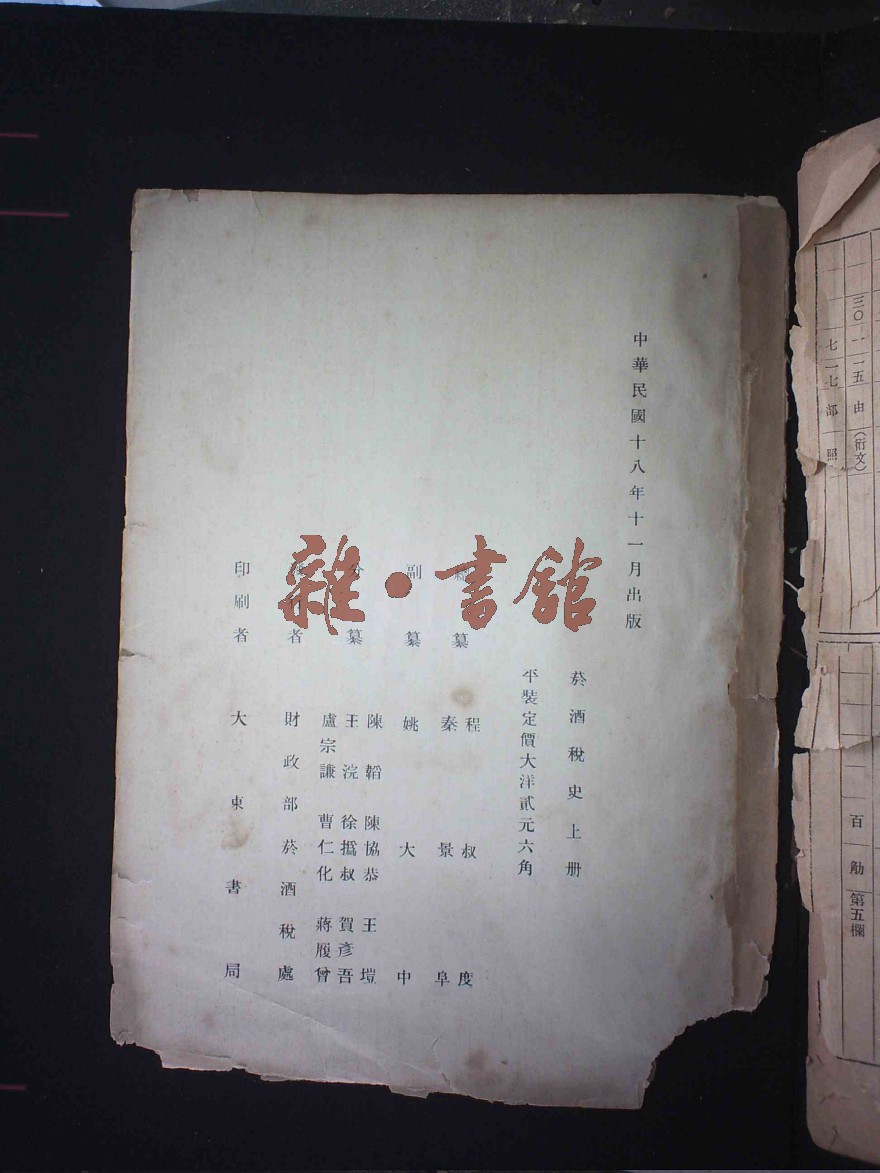 中華民國十八年十一月出版
菸酒稅史上册
平裝定價大洋貳元六角
纂 程叔度
秦景阜
副纂 姚大中
分纂 陳韜 陳協恭 王塏
王浣 徐撝叔 賀彥吾
盧宗謙 曹仁化 蔣履曾
者 財政部菸酒稅處
印刷者 大東書局
雜·書館
三〇 一一五 由 (衍文)
七一七 部 照
百 觔 第五欄